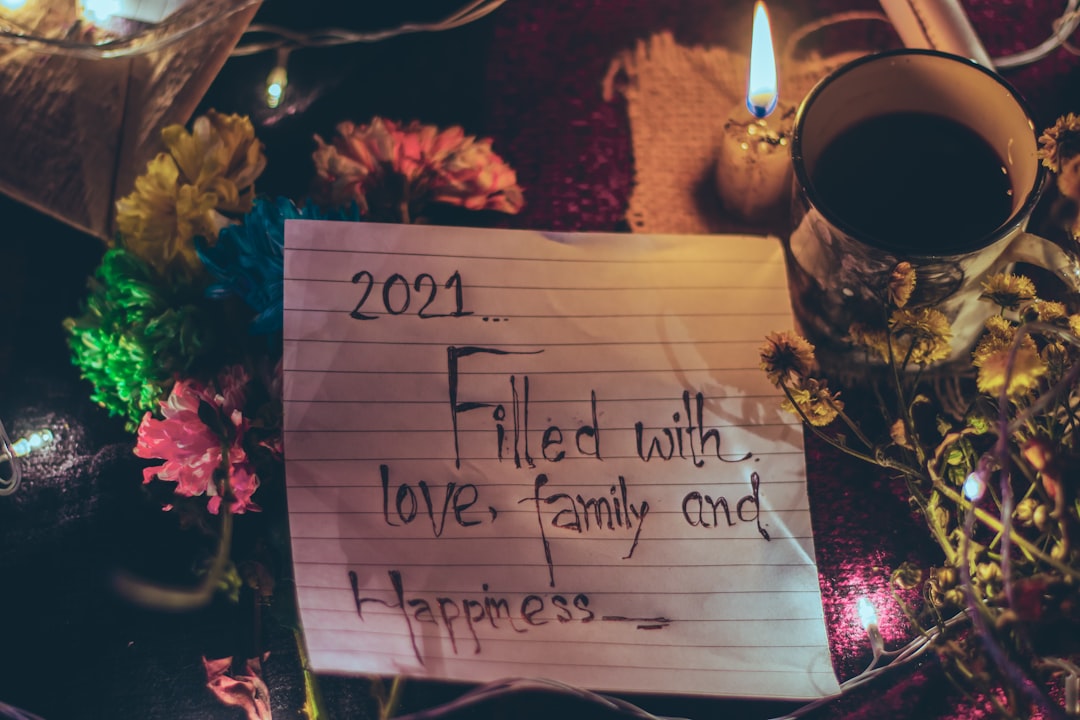 2021...
Filled with
love, family and
Happiness